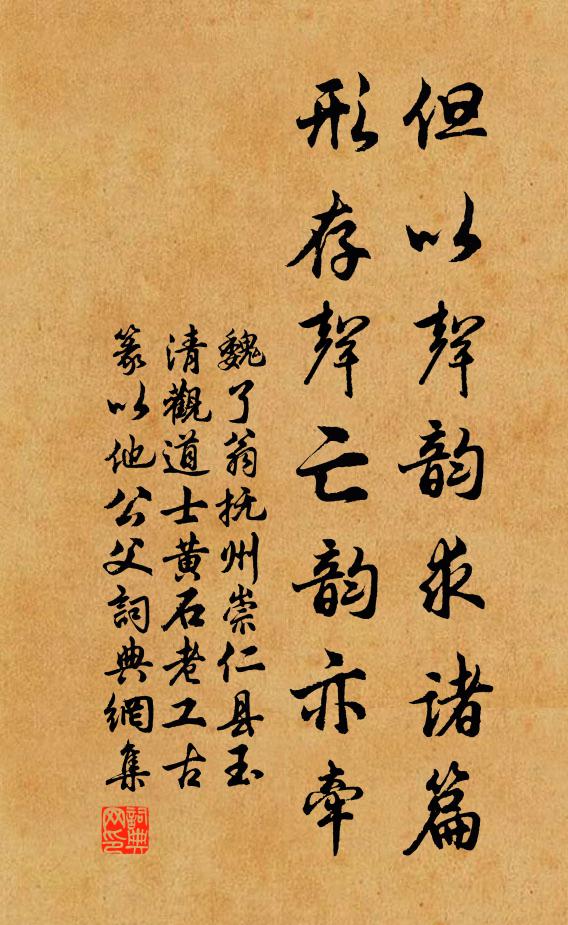 但以聲韵求諸篇
形存聲亡韵亦牽
魏了翁抚州崇仁县玉
清觀道士黄石老工古
篆以他公父詞典網集
詞典网印